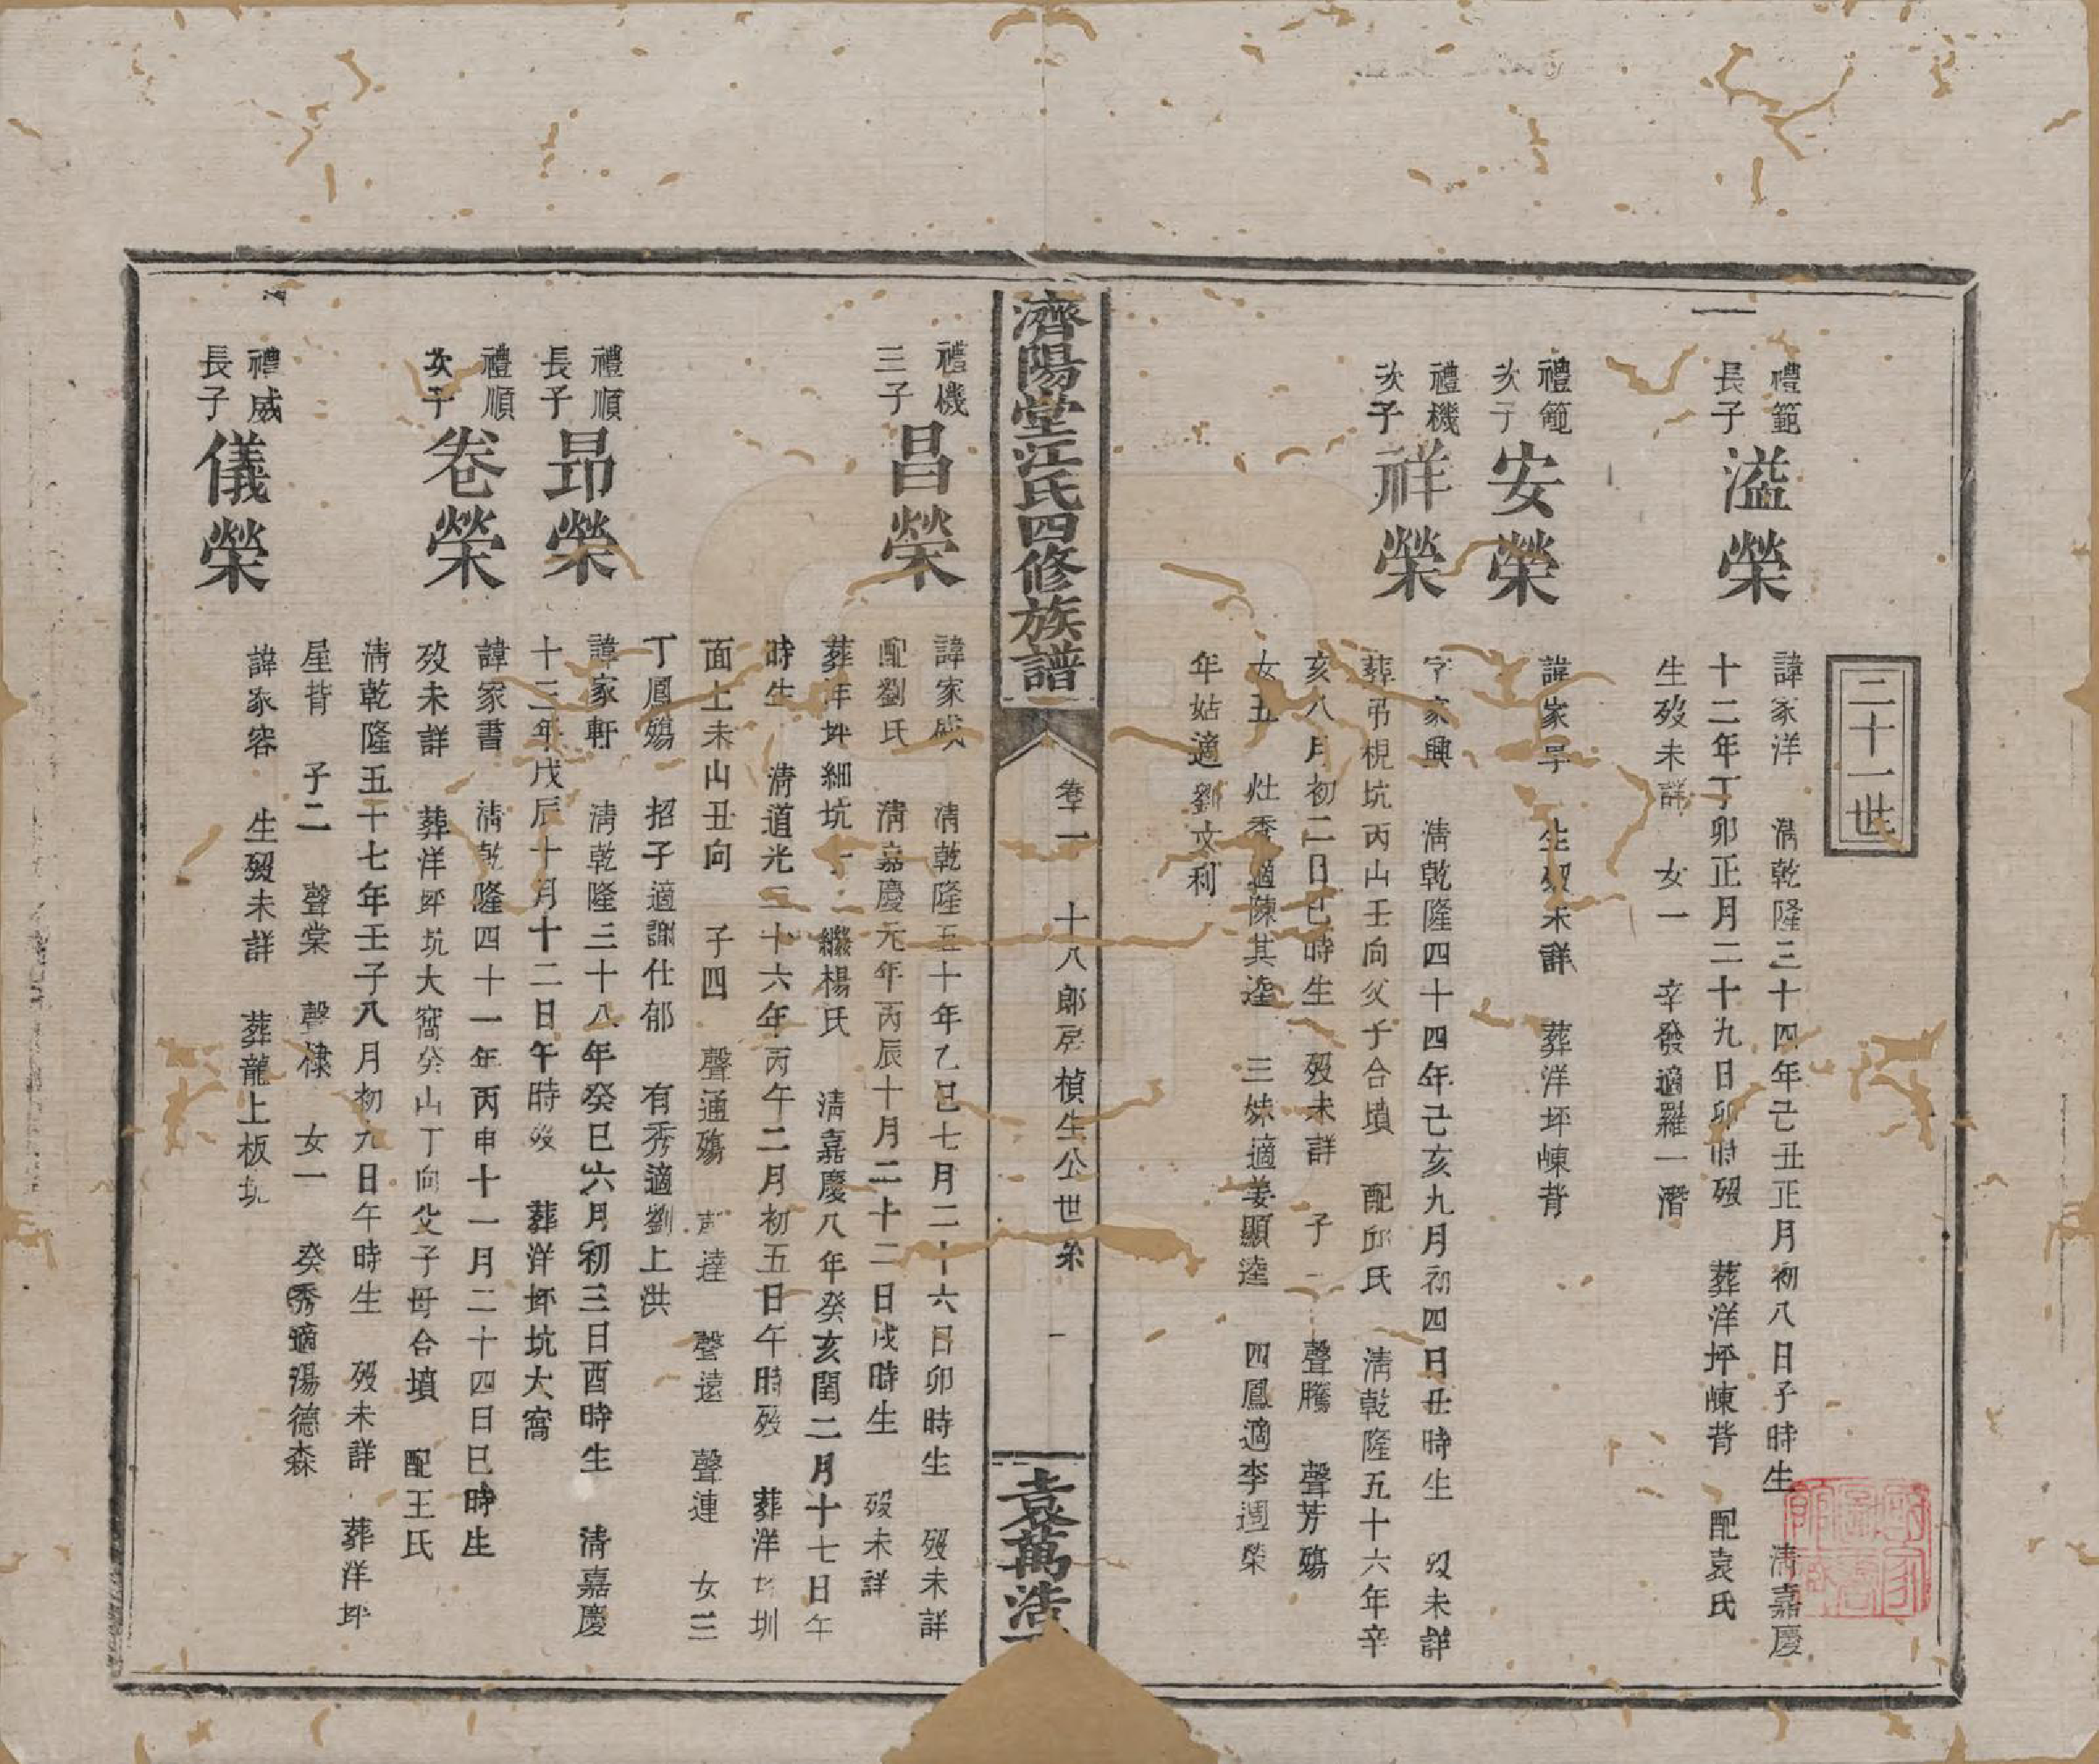 二十一世
禮範
長子
溢榮
諱家洋 淸乾隆三十四年己丑正月初八日子時生 淸嘉慶
十二年丁卯正月二十九日卯時歿 葬洋坪崠背 配袁氏
生歿未詳 女一 辛發適羅一潛
禮範
次子
安榮
諱家 生歿未詳 葬洋坪崠背
禮機
次子
祥榮
字家興 淸乾隆四十四年己亥九月初四日丑時生 歿未詳
葬吊梘坑丙山壬向父子合墳 配邱氏 淸乾隆五十六年辛
亥八月初二日巳時生 歿未詳 子二 聲騰 聲芳殤
女五 灶秀適陳其逵 三妹適姜顯逵 四鳳適李週榮
年姑適劉文利
濟陽堂江氏四修族譜
卷十一 十八郎房楨生公世系 一
袁萬浩
禮機
三子
昌榮
諱家成 淸乾隆五十年乙巳七月二十六日卯時生 歿未詳
配劉氏 淸嘉慶元年丙辰十月二十二日戌時生 歿未詳
葬洋坪細坑 繼楊氏 淸嘉慶八年癸亥閏二月十七日午
時生 淸道光二十六年丙午二月初五日午時歿 葬洋 圳
面上未山丑向 子四 聲通殤 聲達 聲遠 聲連 女三
丁鳳殤 招子適謝仕郁 有秀適劉上洪
禮順
長子
昻榮
諱家軒 淸乾隆三十八年癸巳六月初三日酉時生 淸嘉慶
十三年戊辰十月十二日午時歿 葬洋坪坑大窩
禮順
次子
卷榮
諱家書 淸乾隆四十一年丙申十一月二十四日巳時生
歿未詳 葬洋坪坑大窩癸山丁向父子母合墳 配王氏
淸乾隆五十七年壬子八月初九日午時生 歿未詳 葬洋坪
星背 子二 聲棠 聲棣 女一 癸秀適湯德森
禮威
長子
儀榮
諱家容 生歿未詳 葬龍上板坑